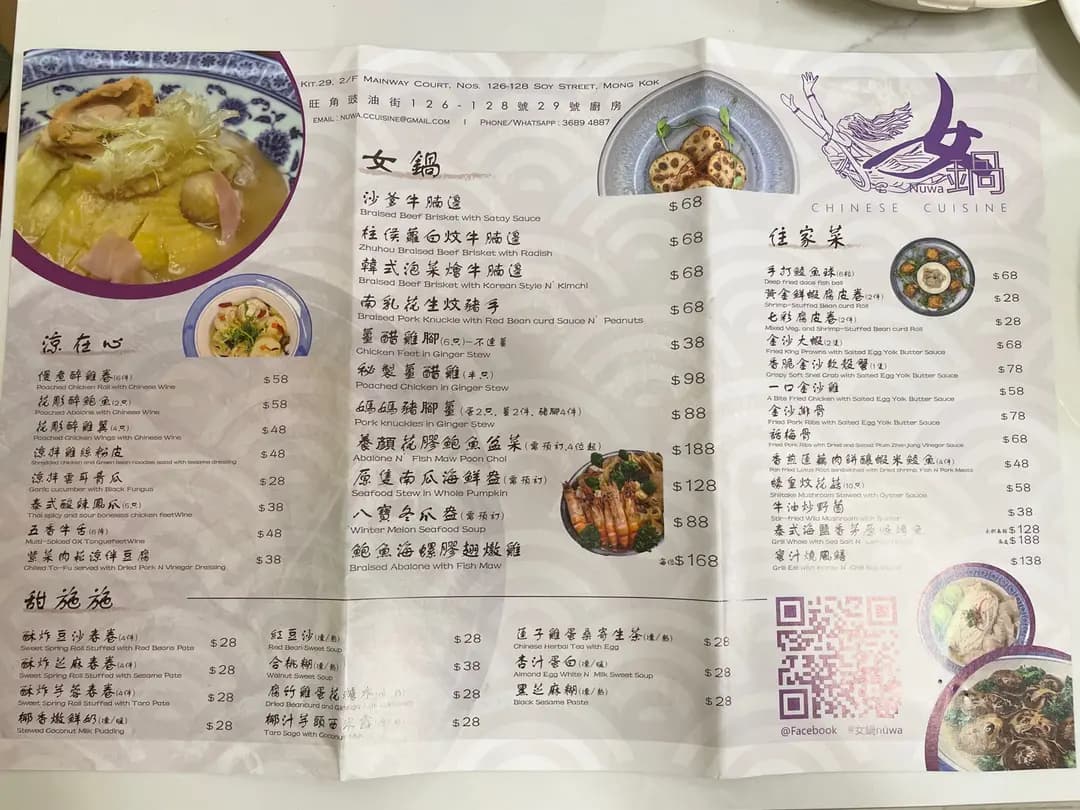 Kit.29, 2/F Mainway Court, Nos. 126-128 Soy Street, Mong Kok
旺角豉油街126-128號29號廚房
email : nuwa.ccuisine@gmail.com | Phone/Whatsapp : 3689 4887
女鍋
Nuwa
CHINESE CUISINE
涼在心
慢煮醉雞卷(6件) $58
Poached Chicken Roll with Chinese Wine
花彫醉鮑魚(2只) $58
Poached Abalone with Chinese Wine
花彫醉雞翼(4只) $48
Poached Chicken Wings with Chinese Wine
涼拌雞絲粉皮 $48
Shredded chicken and Green bean noodles salad with sesame dressing
涼拌雲耳青瓜 $28
Garlic cucumber with Black Fungus
泰式酸辣鳳爪(6只) $38
Thai spicy and sour boneless chicken feetWine
五香牛舌(6件) $48
Multi-Spiced OX TonguefeetWine
紫菜肉崧涼伴豆腐 $38
Chilled To-Fu served with Dried Pork N Vinegar Dressing
女鍋
沙爹牛腩邊 $68
Braised Beef Brisket with Satay Sauce
柱侯蘿白炆牛腩邊 $68
Zhuhou Braised Beef Brisket with Radish
韓式泡菜燴牛腩邊 $68
Braised Beef Brisket with Korean Style N' Kimchi
南乳花生炆豬手 $68
Braised Pork Knuckle with Red Bean curd Sauce N' Peanuts
薑醋雞腳(6只)-不連薑 $38
Chicken Feet in Ginger Stew
秘製薑醋雞(半只) $98
Poached Chicken in Ginger Stew
媽媽豬腳薑(蛋2只, 薑2件, 豬腳4件) $88
Pork knuckles in Ginger Stew
養顏花膠鮑魚盆菜(需預訂,4位起) $188
Abalone N' Fish Maw Poon Choi
原隻南瓜海鮮盅(需預訂) $128
Seafood Stew in Whole Pumpkin
八寶冬瓜盅(需預訂) $88
Winter Melon Seafood Soup
鮑魚海螺膠翅燉雞 每位$168
Braised Abalone with Fish Maw
住家菜
手打鯪魚球(6粒) $68
Deep fried dace fish ball
黃金鮮蝦腐皮卷(2件) $28
Shrimp-Stuffed Bean curd Roll
七彩腐皮卷(2件) $28
Mixed Veg. and Shrimp-Stuffed Bean curd Roll
金沙大蝦(2隻) $68
Fried King Prawns with Salted Egg Yolk Butter Sauce
香脆金沙軟殼蟹(1隻) $78
Crispy Soft Shell Crab with Salted Egg Yolk Butter Sauce
一口金沙雞 $58
A Bite Fried Chicken with Salted Egg Yolk Butter Sauce
金沙排骨 $78
Fried Pork Ribs with Salted Egg Yolk Butter Sauce
話梅骨 $68
Fried Pork Ribs with Dried and Salted Plum Zhen Jiang Vinegar Sauce
香煎蓮藕肉餅釀蝦米鯪魚(4件) $48
Pan fried Lotus Root sandwiched with Dried shrimp, Fish N Pork Meats
蠔皇炆花菇(10只) $58
Shiitake Mushroom Stewed with Oyster Sauce
牛油炒野菌 $38
Stir-fried Wild Mushroom with Butter
泰式海鹽香茅 $128
$188
Grill Whole with Sea Salt N'
蜜汁燒風鱔 $138
Grill Eel with
甜施施
酥炸豆沙春卷(4件) $28
Sweet Spring Roll Stuffed with Red Beans Pate
酥炸芝麻春卷(4件) $28
Sweet Spring Roll Stuffed with Sesame Pate
酥炸芋蓉春卷(4件) $28
Sweet Spring Roll Stuffed with Taro Pate
椰香燉鮮奶(凍/暖) $28
Stewed Coconut Milk Pudding
紅豆沙(凍/熱) $28
Red Bean Sweet Soup
合桃糊(凍/熱) $38
Walnut Sweet Soup
腐竹雞蛋花 $28
Dried Beancurd and
椰汁芋頭西米露 $28
Taro Sago with Coconut
蓮子雞蛋桑寄生茶(凍/熱) $28
Chinese Herbal Tea with Egg
杏汁蛋白(凍/暖) $28
Almond Egg White N' Milk Sweet Soup
黑芝麻糊(凍/熱) $28
Black Sesame Paste
@Facebook #女鍋nuwa